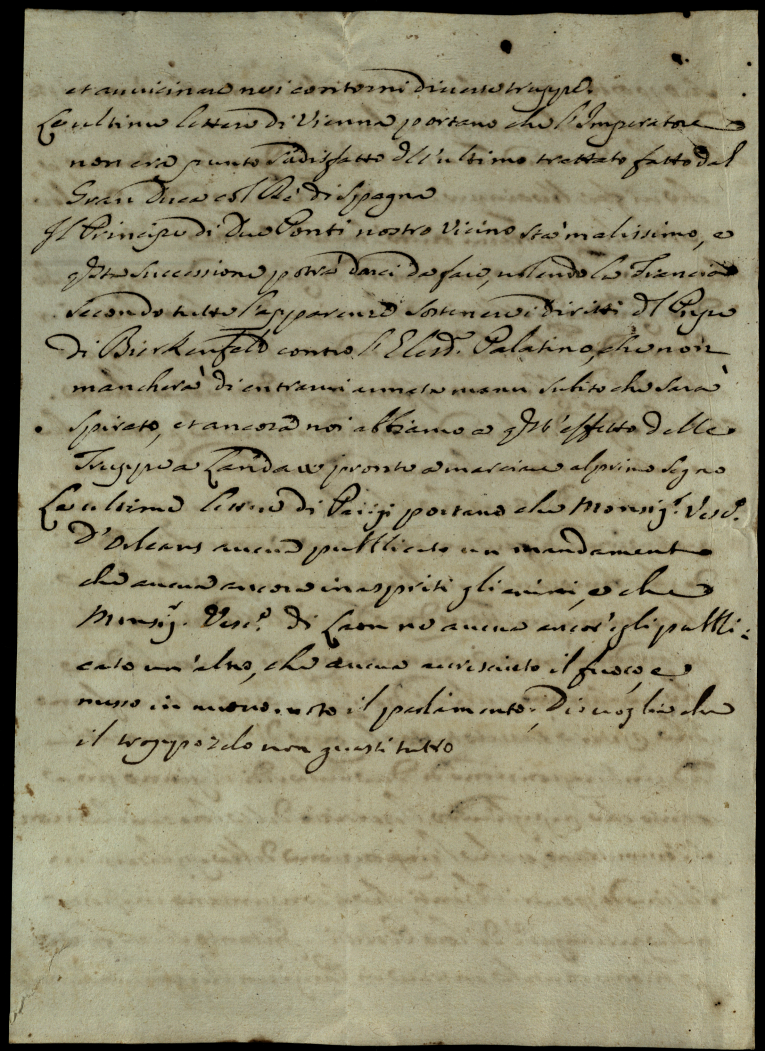 et avvicinare nei contorni diverse truppe.
Le ultime lettere di Vienna portano che l'Imperatore
non era punto sodisfatto dll'ultimo trattato fatto dal
Gran Duca col Rè di Spagna
Il Principe di Due Ponti nostro Vicino stà malissimo, e
qsta successione potrà darci da fare, volendo la Francia
secondo tutte l'apparenze sostenere i diritti dl Prpe
di Birkenfeld contro l'Elett. Palatino, che non
mancherà di entrarvi armata manu subito che sarà
spirato, et ancora noi abbiamo a qst'effetto delle
Truppe a Landau pronte a marciare al primo segno
Le ultime lettere di Parigi portano che Monsig.r Vesc.o
D'Orleans aveva pubblicato un mandamento
che aveva ancora inaspriti gli animi, e che
Monsig.r Vesc.o di Laon ne aveva ancor egli pubbli=
cato un'altro, che aveva accresciuto il fuoco, e
messo in nuovo moto il parlamento. Dio voglia che
il troppo zelo non guasti tutto